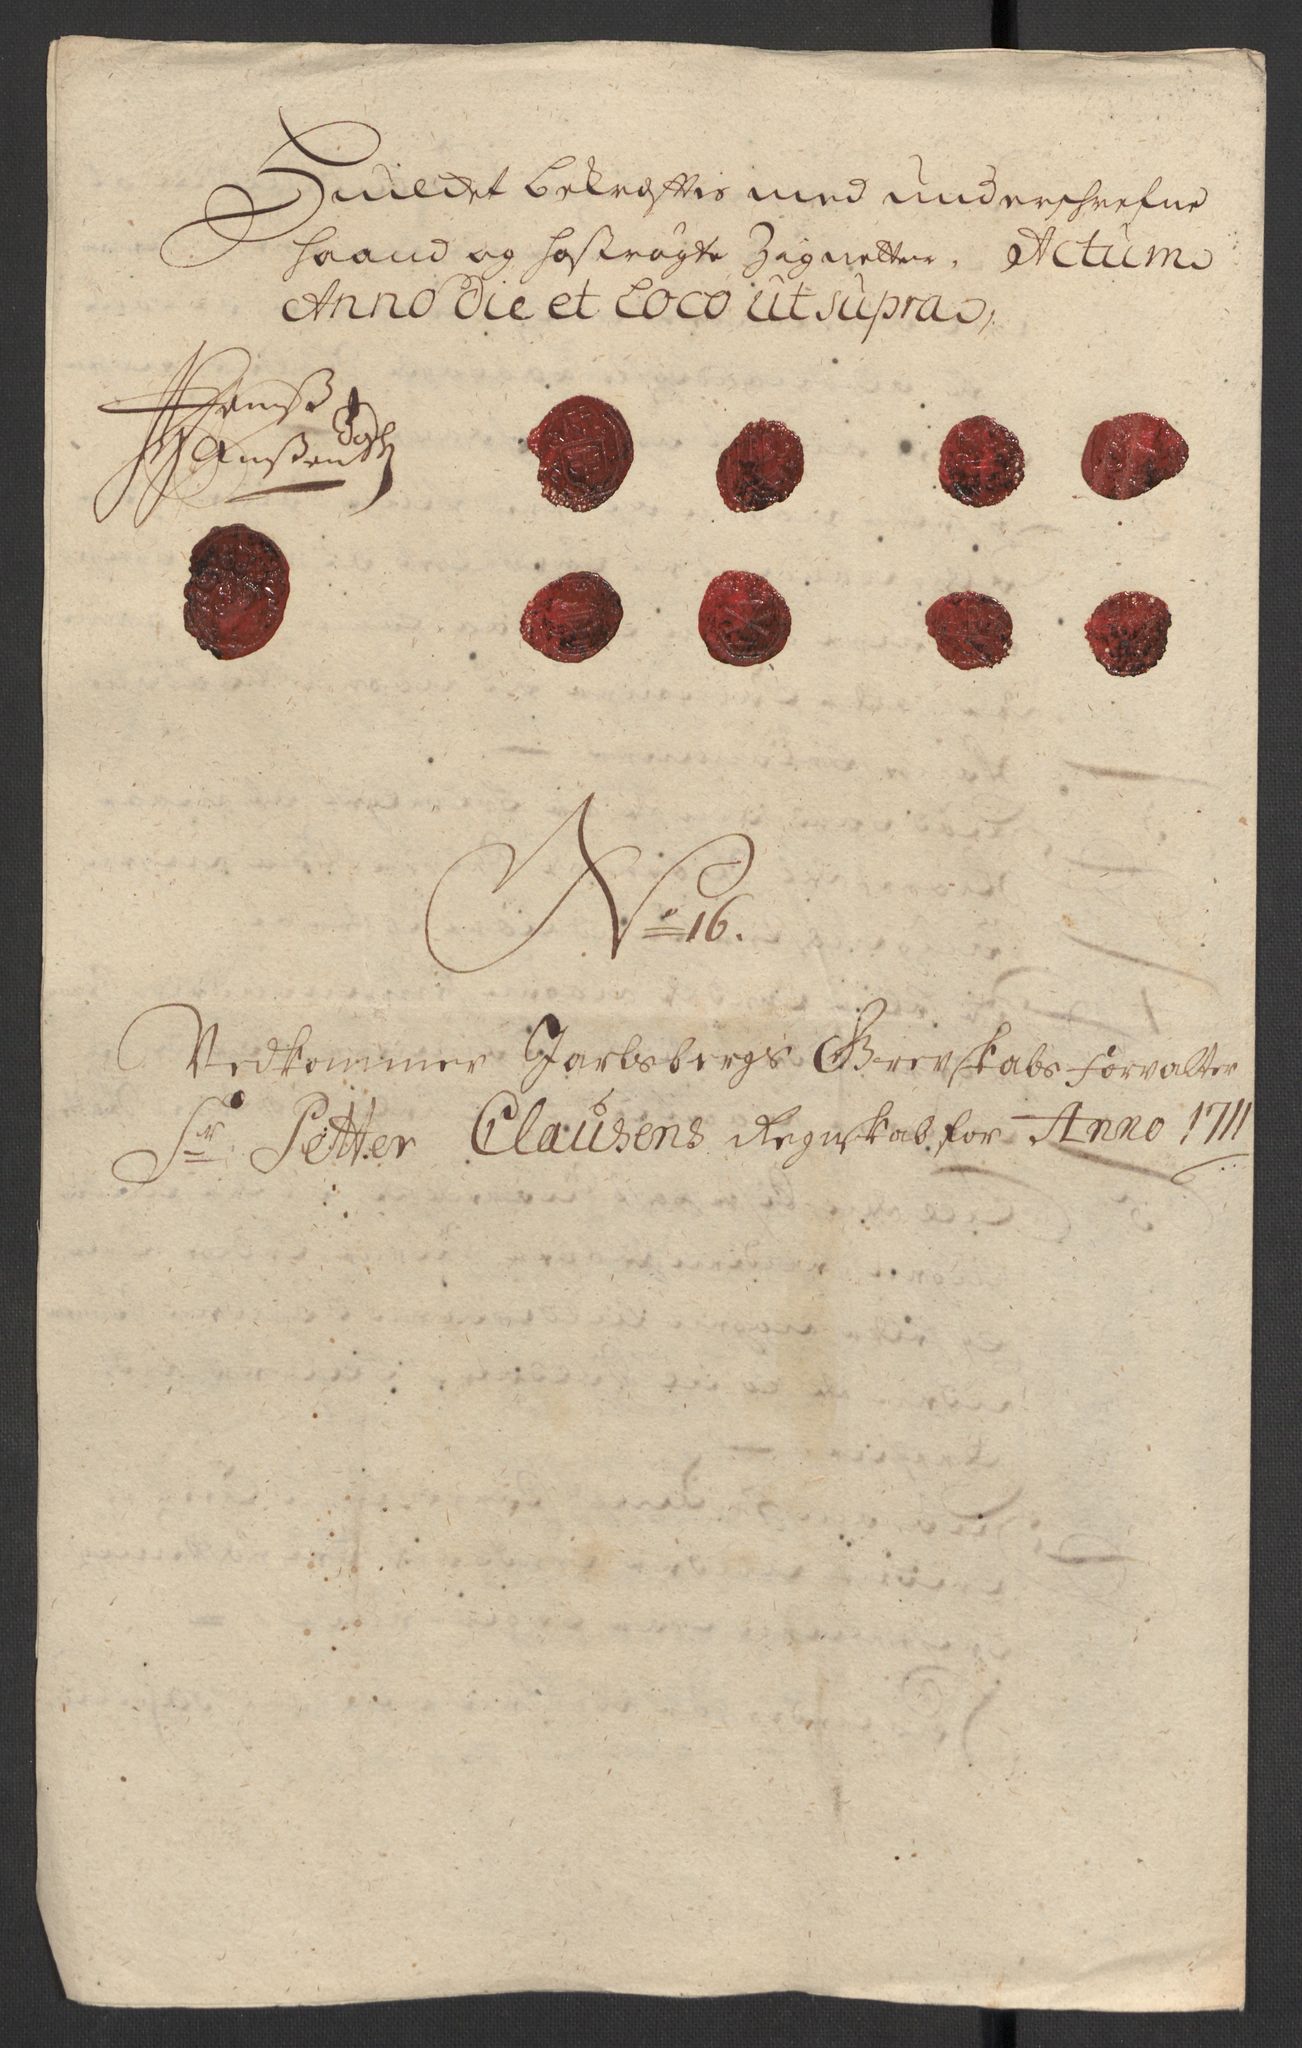 Huilcdet bekræfftis med underschrefne
haand og hoströgte Zignetter. Actum
Anno Die et Loco ut supra,
Hansen
No 16.
Vedkommer Jarlsbergs Grevskabs Forvalter
Sr Petter Clausens Regnskab for Anno 1711